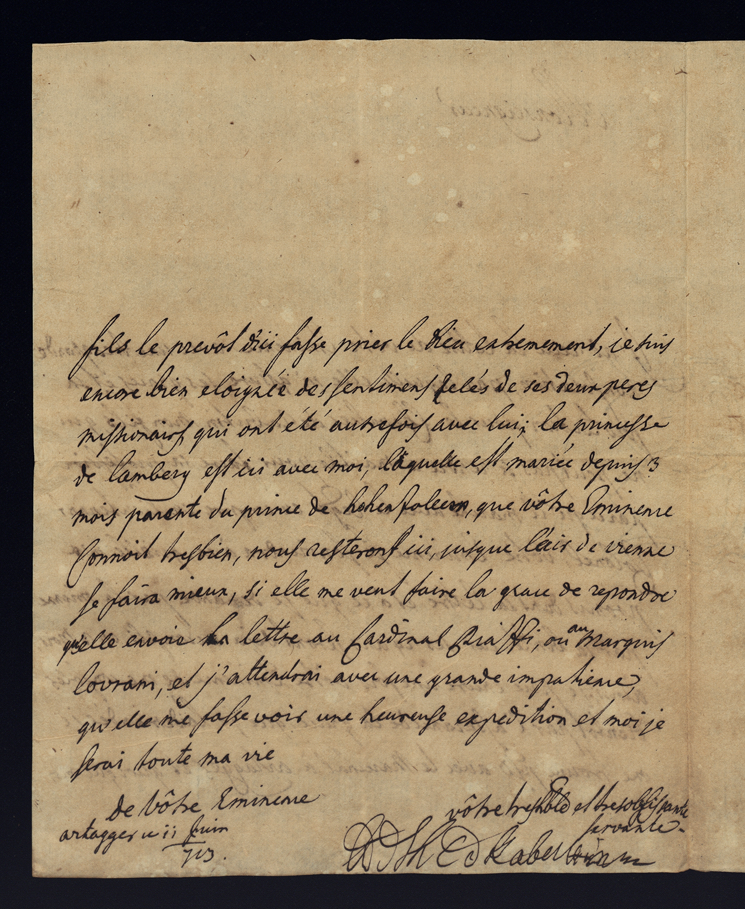 fils le prevôt d'ici fasse prier le dieu extremement, je suis
encore bien eloignée des sentimens zelés de ses deux peres
missionairs qui ont été autrefois avec lui; la princesse
de lamberg est ici avec moi, laquelle est mariée depuis 3
mois parente du prince de hohenzolern, que vôtre Eminence
Connoit tresbien, nous resterons ici, jusque l'air de vienne
se faira mieux, si elle me veut faire la grace de repondre
qu'elle envoie la lettre au Cardinal Piazzi, ou au Marquis
lovrani, et j'attendrai avec une grande impatience,
qu'elle me fasse voir une heureuse expedition et moi je
serai toute ma vie
de Vôtre Eminence
vôtre tres et tresobeissante
servante
ce 11 Juin
713.